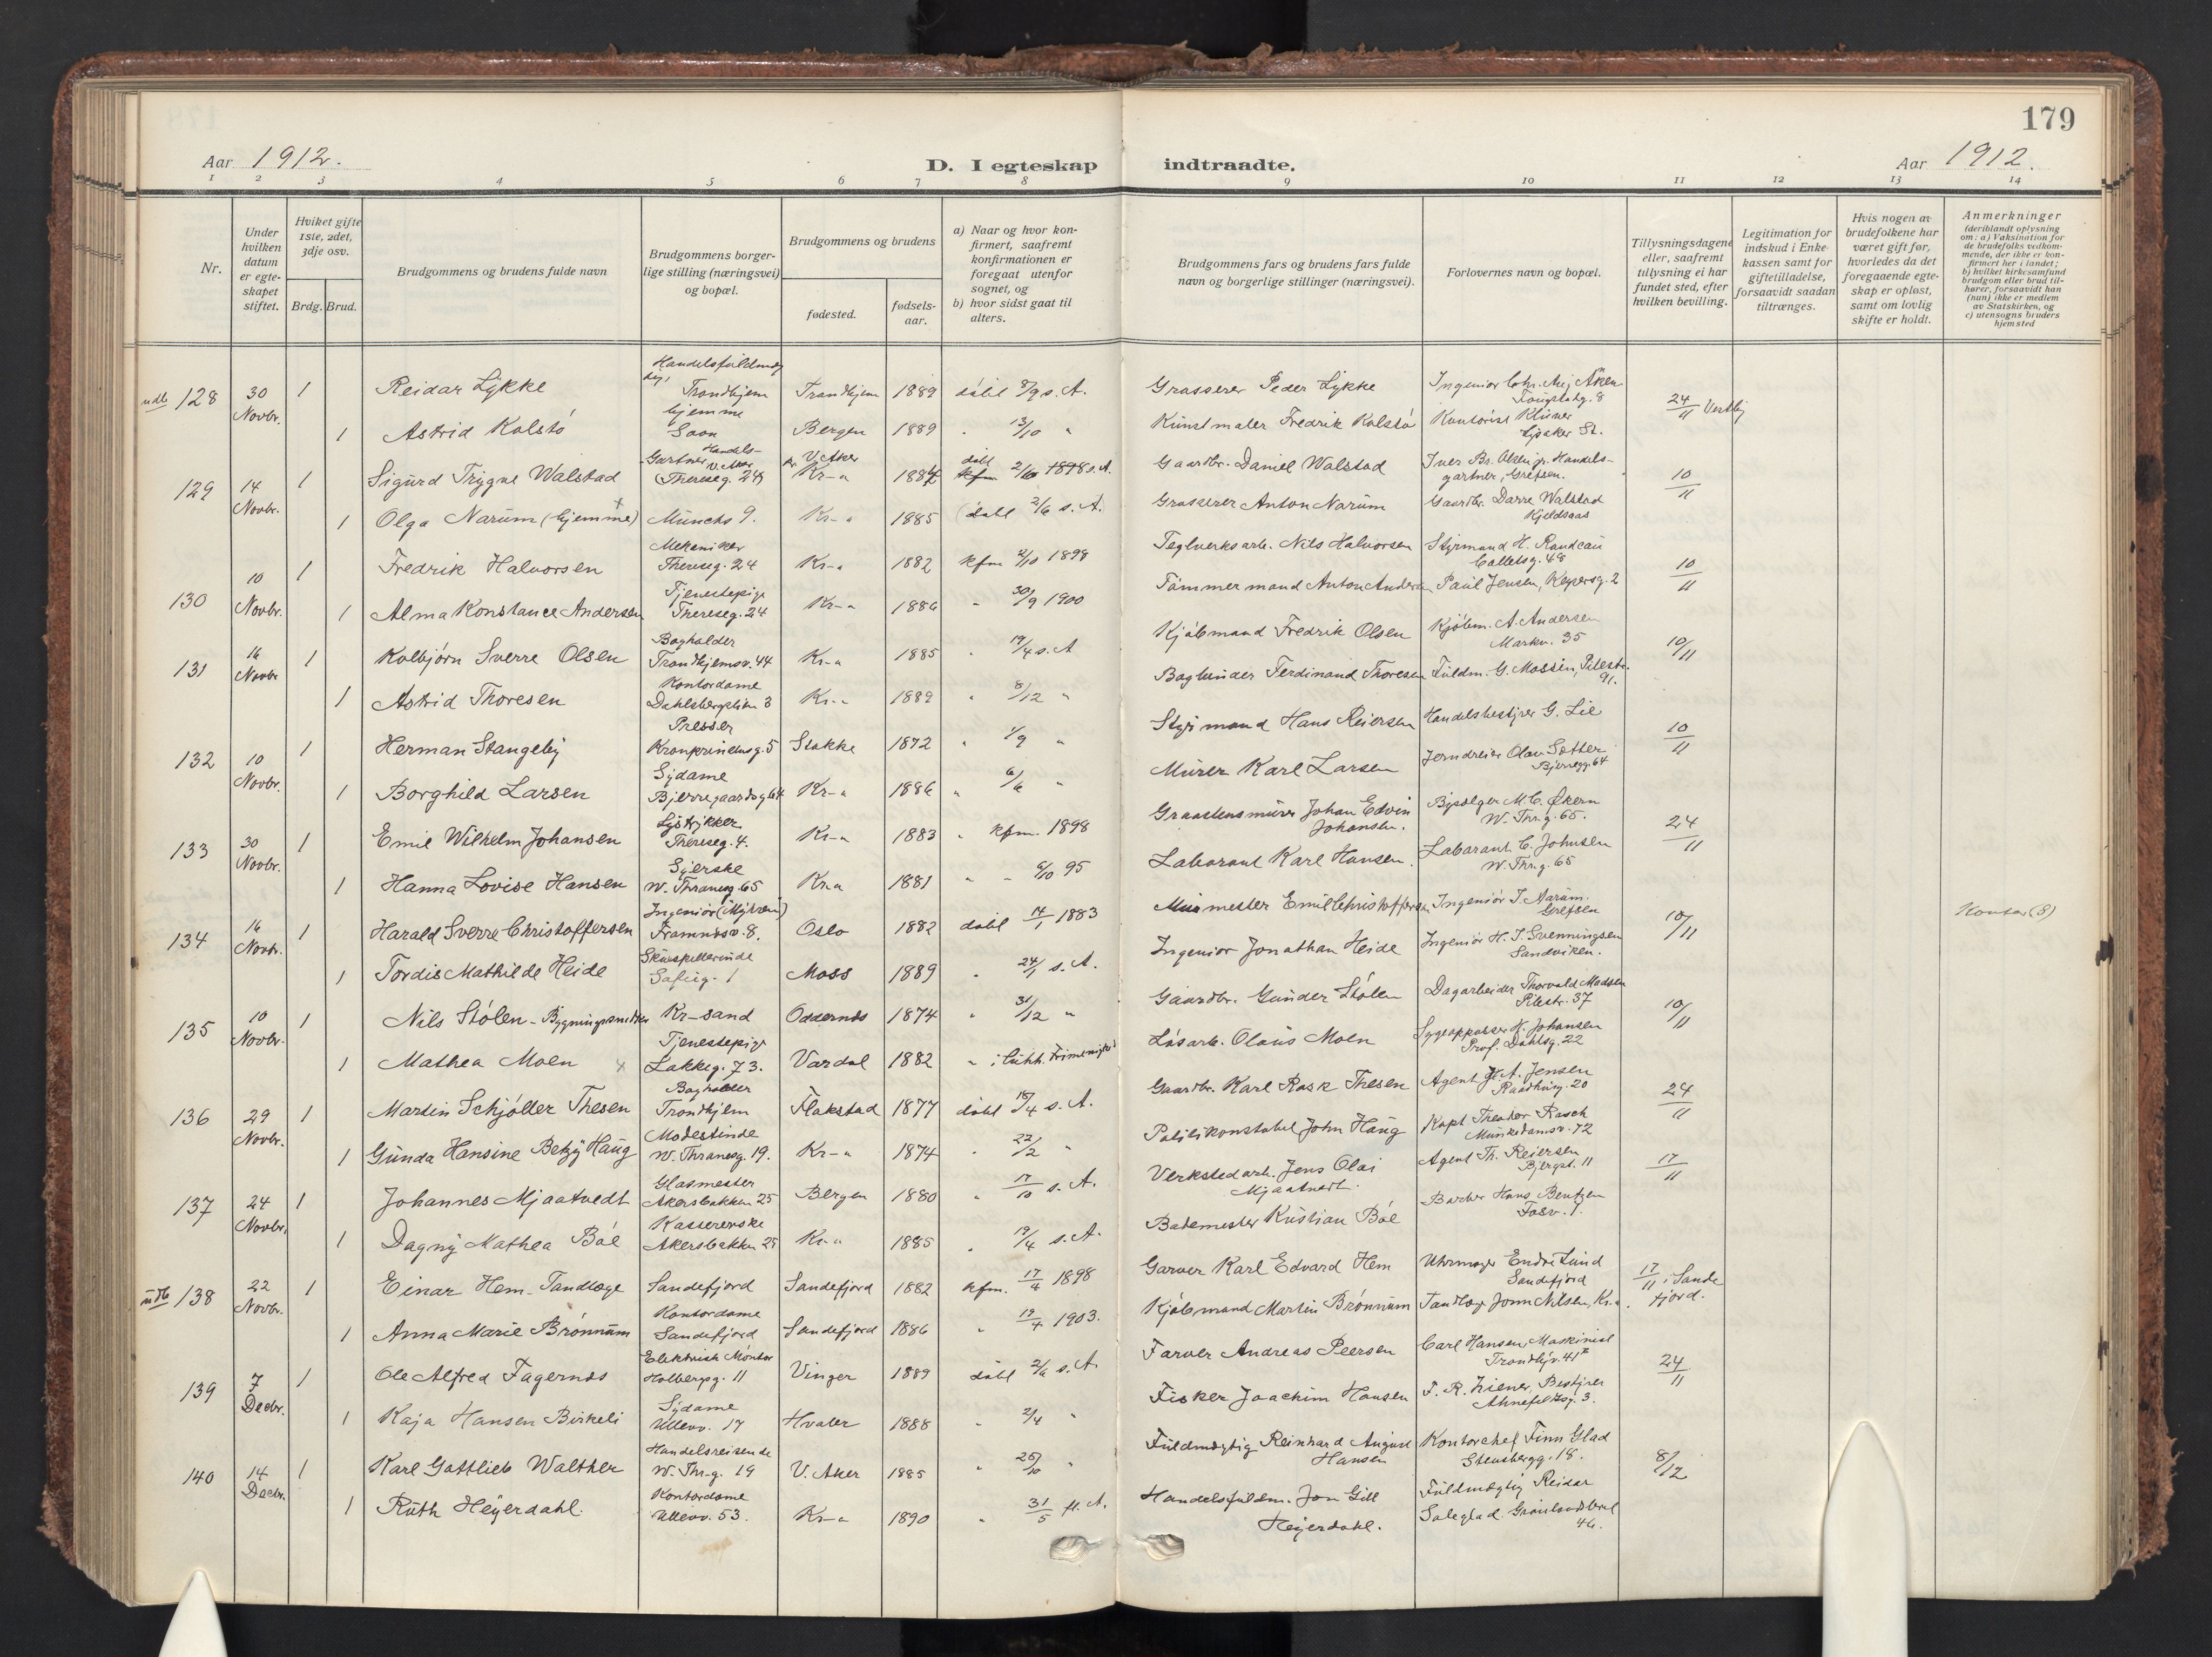 179
Aar 1912.
D. I egteskap indtraadte.
Aar 1912.
1 2 3 4 5 6 7 8 9 10 11 12 13 14
Nr.
Under hvilken datum er egteskapet stiftet.
Hvilket gifte 1ste, 2det, 3dje osv.
Brdg. Brud.
Brudgommens og brudens fulde navn
Brudgommens borgerlige stilling (næringsvei) og bopæl.
Brudgommens og brudens
fødested.
fødselsaar.
a) Naar og hvor konfirmert, saafremt konfirmationen er foregaat utenfor sognet, og
b) hvor sidst gaat til alters.
Brudgommens fars og brudens fars fulde navn og borgerlige stillinger (næringsvei).
Forlovernes navn og bopæl.
Tillysningsdagene eller, saafremt tillysning ei har fundet sted, efter hvilken bevilling.
Legitimation for indskud i Enkekassen samt for giftetilladelse, forsaavidt saadan tiltrænges.
Hvis nogen av brudefolkene har været gift før, hvorledes da det foregaaende egteskap er opløst, samt om lovlig skifte er holdt.
Anmerkninger (deriblandt oplysning om: a) Vaksination for de brudefolks vedkommende, der ikke er konfirmert her i landet; b) hvilket kirkesamfund brudgom eller brud tilhører, forsaavidt han (hun) ikke er medlem av Statskirken, og c) utensogns bruders hjemsted
udb 128 30 Novbr. 1 Reidar Lykke Trondhjem Trondhjem 1889 døbt 8/9 s. A. Grosserer Peder Lykke 24/11 Vestby
1 Astrid Kolstø hjemme Soon Bergen 1889 " 13/10 " Kunstmaler Fredrik Kolstø Kontorist Lysaker St.
129 14 Novbr. 1 Sigurd Trygve Walstad Handels-Gartner V. Aker (Thereseg. 24) V. Aker Kr-a 1884 døbt kfm 1898 s. A. Gaardbr. Daniel Walstad Handelsgartner, Grefsen. 10/11
1 Olga Narum (hjemme) Munchs 9. Kr-a 1885 (døbt 2/6 s. A. Grosserer Anton Narum Gaardbr. Walstad Kjeldsaas
130 10 Novbr. 1 Fredrik Halvorsen Mekaniker Thereseg. 24 Kr-a 1882 kfm 2/10 1898 Teglverksarb. Nils Halvorsen Styrmand H. Colletsg. 48 10/11
1 Alma Konstance Anderssen Tjenestepige Thereseg. 24 Kr-a 1886 " 30/9 1900 Tømmermand Anton Andersen Paul Jensen, Keysersg. 2
131 16 Novbr 1 Kolbjørn Sverre Olsen Bogholder Trondhjemsv. 44 Kr-a 1885 " 19/4 s. A Kjøbmand Fredrik Olsen Kjøbm. A. Andersen Markv. 35 10/11
1 Astrid Thoresen Kontordame Dahlsbergstien 3 Kr-a 1889 " 8/12 " Bogbinder Ferdinand Thoresen Fuldm. G. Mossin, Pilestr. 91.
132 10 Novbr. 1 Herman Stangeby Presser Kronprinsensg. 5 Stokke 1872 " 1/9 " Styrmand Hans Reiersen Handelsbestyrer G. Lie 10/11
1 Borghild Larsen Sydame Bjerregaardsg 64 Kr-a 1886 " 6/6 " Murer Karl Larsen Jerndreier Olav Sætter Bjerregg. 64
133 30 Novbr. 1 Emil Wilhelm Johansen Lystrykker Thereseg. 4. Kr-a 1883 " kfm. 1898 Graastensmurer Johan Edvin Johansen. Bysælger M. C. Økern W. Thr.g. 65. 24/11
1 Hanna Lovise Hansen Syerske W. Thranesg. 65 Kr-a 1881 " " 6/10 95 Laborant Karl Hansen. Laborant C. Johnsen W. Thr.g. 65
134 16 Novbr. 1 Harald Sverre Christoffersen Ingeniør Framnæsv. 8. Oslo 1882 døbt 14/1 1883 Murmester Emil Christoffersen Ingeniør Grefsen 10/11 Kontor (8)
1 Tordis Mathilde Heide Skuespillerinde Sofieg. 1 Moss 1889 " 24/1 s. A. Ingeniør Jonathan Heide Ingeniør H. J. Svenningsen Sandviken.
135 10 Novbr. 1 Nils Stølen - Bygningssnedker Kr-sand Oddernes 1874 " 31/12 " Gaardbr. Gunder Stølen Dagarbeider Thorvald Madsen Pilestr. 37 10/11
1 Mathea Moen Tjenestepige Lakkeg. 73. Vardal 1882 Løsarb. Olaus Moen Sygepasser K. Johansen Prof. Dahlsg. 22
136 29 Novbr. 1 Martin Schjøller Thesen Bogholder Trondhjem Flakstad 1877 døbt 18/4 s. A. Gaardbr. Karl Rask Thesen Agent A. Jensen Raadhusg. 20 24/11
1 Gunda Hansine Betzy Haug Modestinde W. Thranesg. 19. Kr-a 1874 " 22/2 " Politikonstabel John Haug Kapt Theodor Rasch Munkedamsv. 72
137 24 Novbr. 1 Johannes Mjaatvedt Glasmester Akersbakken 25 Bergen 1880 " 17/10 s. A. Verkstedarb. Jens Olai Mjaatvedt. Agent Th. Reiersen Bjergst. 11 17/11
1 Dagny Mathea Bøe Kassererske Akersbakken 25 Kr-a 1885 " 19/4 s. A. Bademester Kristian Bøe Barber Hans Bentzen Fosv. 7.
udb 138 22 Novbr. 1 Einar Hem - Tandlæge Sandefjord Sandefjord 1882 kfm. 17/4 1898 Garver Karl Edvard Hem Uhrmager Endre Lund Sandefjord 17/11 i Sandefjord.
1 Anna Marie Brønnum Kontordame Sandefjord Sandefjord 1886 " 19/4 1903. Kjøbmand Martin Brønnum Tandlæge John Nilsen, Kr-a.
139 7 Decbr. 1 Ole Alfred Fagernæs Elektrisk Montør Holbergsg. 11 Vinger 1889 døbt 2/6 s. A. Farver Andreas Peersen Carl Hansen, Maskinist Trondhjv. 41 24/11
1 Kaja Hansen Birkeli Sydame Ullevv. 17 Hvaler 1888 " 2/4 " Fisker Joachim Hansen F. R. Ziener, Bestyrer Ahnefeltsg. 3.
140 14 Decbr. 1 Karl Gottlieb Walther Handelsreisende W. Thr-g. 19 V. Aker 1885 " 25/10 " Fuldmægtig Reinhard August Hansen Kontorchef Finn Glad Stensbergg. 18. 8/12
1 Ruth Heyerdahl. Kontordame Ullevv. 53. Kr-a 1890 " 31/5 s. A. Handelsfuldm. Jon Gill Heyerdahl. Fuldmægtig Reidar 46.